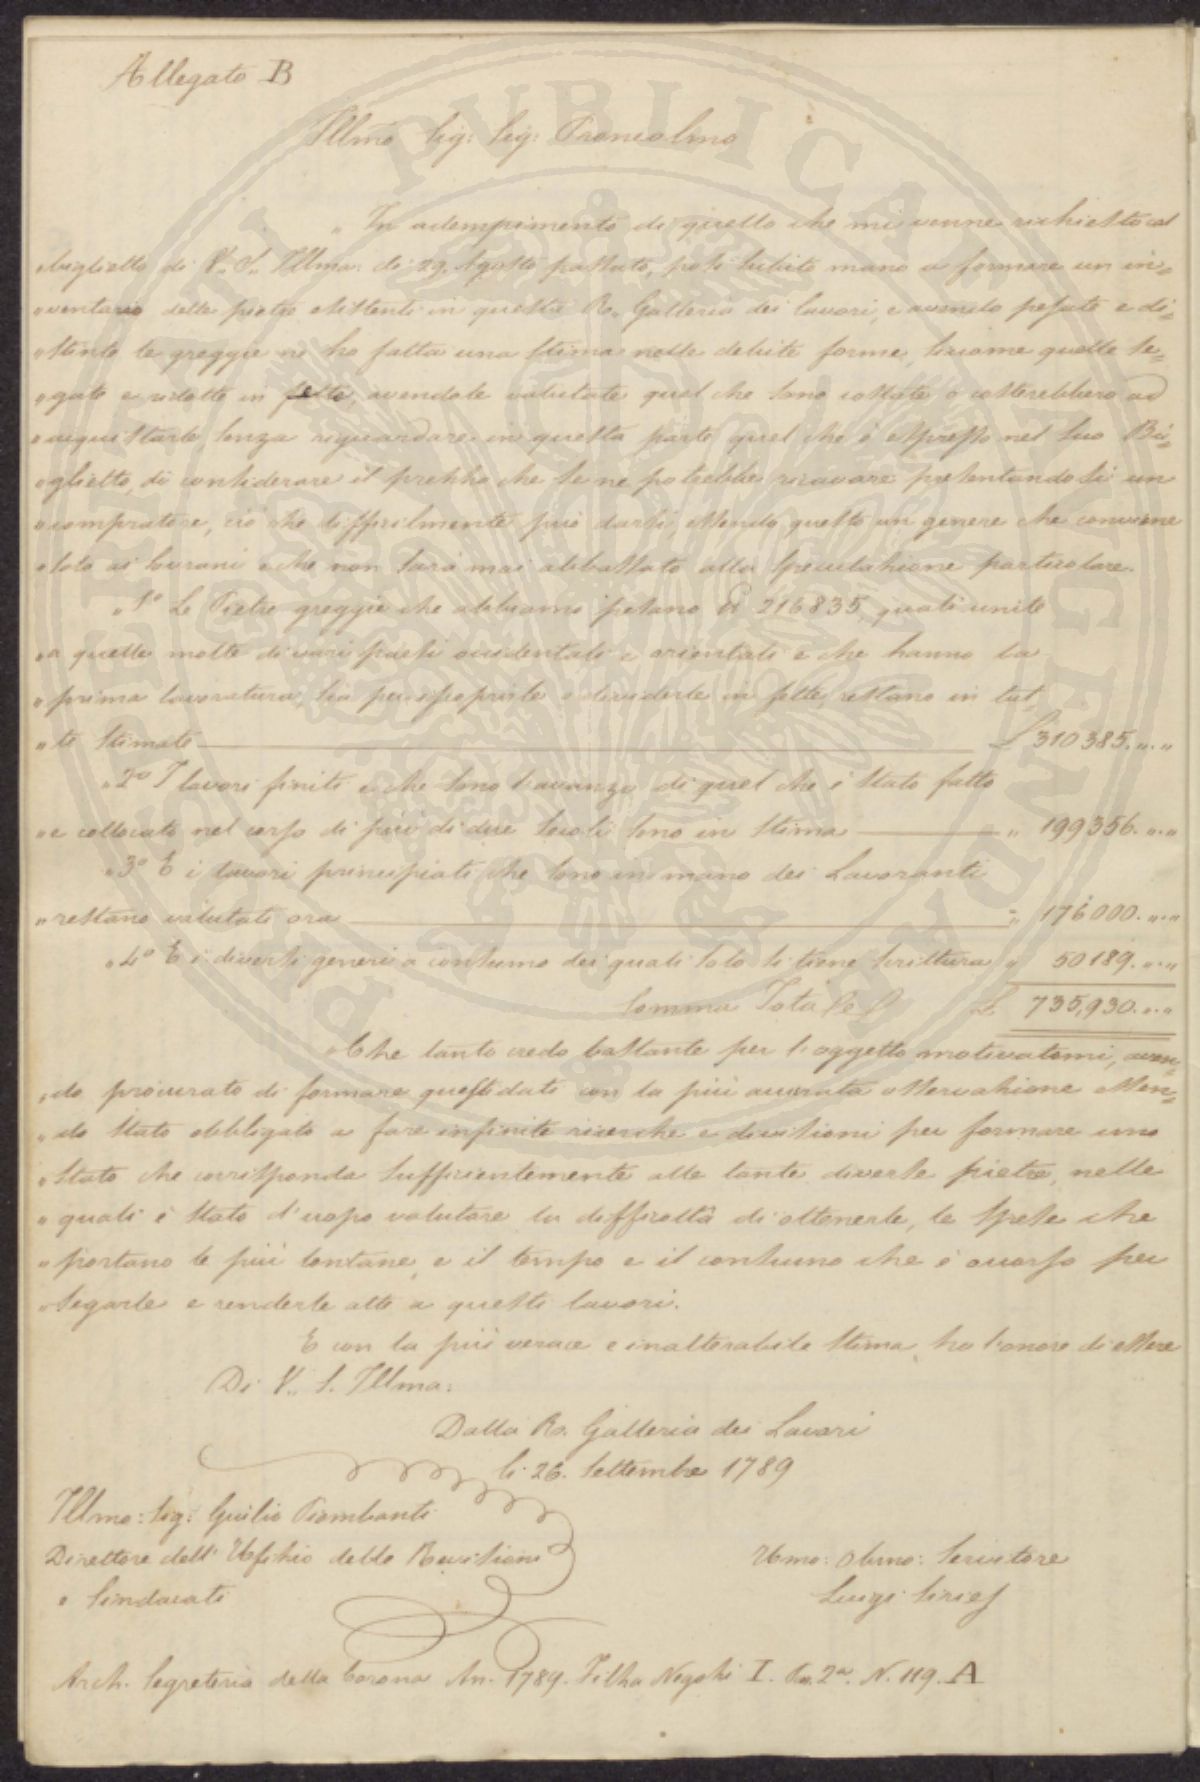 Allegato B
Illmo Sig: Sig: Proncolmo
„ In adempimento di quello che mi venne richiesto col
„biglietto di V. S. Illma: di 29. Agosto passato, posi subito mano a formare un in=
„ventario delle pietre esistenti in questa R. Galleria dei lavori, e avendo pesate e di=
„stinte le greggie ne ho fatta una stima nelle debite forme, siccome quelle se=
„gate e ridotte in fette, avendole valutate quel che sono costate o costerebbero ad
„acquistarle, senza riguardare in questa parte quel che è espresso nel suo Bi=
„glietto, di considerare il prezzo che se ne potrebbe ricavare presentandosi un
„compratore, ciò che difficilmente può darsi, essendo questo un genere che conviene
„solo ai Sovrani e che non sarà mai abbassato alla speculazione particolare.
„1º Le Pietre greggie che abbiamo pesano lb 216835, quali unite
„a quelle molte di vari paesi occidentali e orientali e che hanno la
„prima lavoratura, sia per scoprirle o dividerle in fette, restano in tut
„te stimate £ 310385. „. „
„2º I lavori finiti e che sono l'avanzo di quel che è stato fatto
„e collocato nel corso di più di due secoli sono in stima „ 199356. „. „
„3º E i lavori principiati che sono in mano dei Lavoranti
„restano valutati ora „ 176000. „. „
„4º E i diversi generi a consumo dei quali solo si tiene scrittura „ 50189. „. „
Somma Totale £ 735,930. „. „
„Che tanto credo bastante per l'oggetto motivatomi, aven=
„do procurato di formare questi dati con la più accurata osservazione essen=
„do stato obbligato a fare infinite ricerche e divisioni per formare uno
„stato che corrisponda sufficientemente alle tante diverse pietre, nelle
„quali è stato d'uopo valutare la difficoltà di ottenerle, le spese che
„portano le più lontane, e il tempo e il consumo che è occorso per
„segarle e renderle atte a questi lavori.
E con la più verace e inalterabile stima, ho l'onore di essere
Di V. S. Illma:
Dalla R. Galleria dei Lavori
li 26. Settembre 1789
Illmo: Sig: Giulio Piombanti
Direttore dell' Uffizio delle Revisioni
e Sindacati
Umo: Obmo: Servitore
Luigi Siries
Arch. Segreteria della Corona An. 1789. Filza Negozi I. Pa. 2ª. N. 119. A